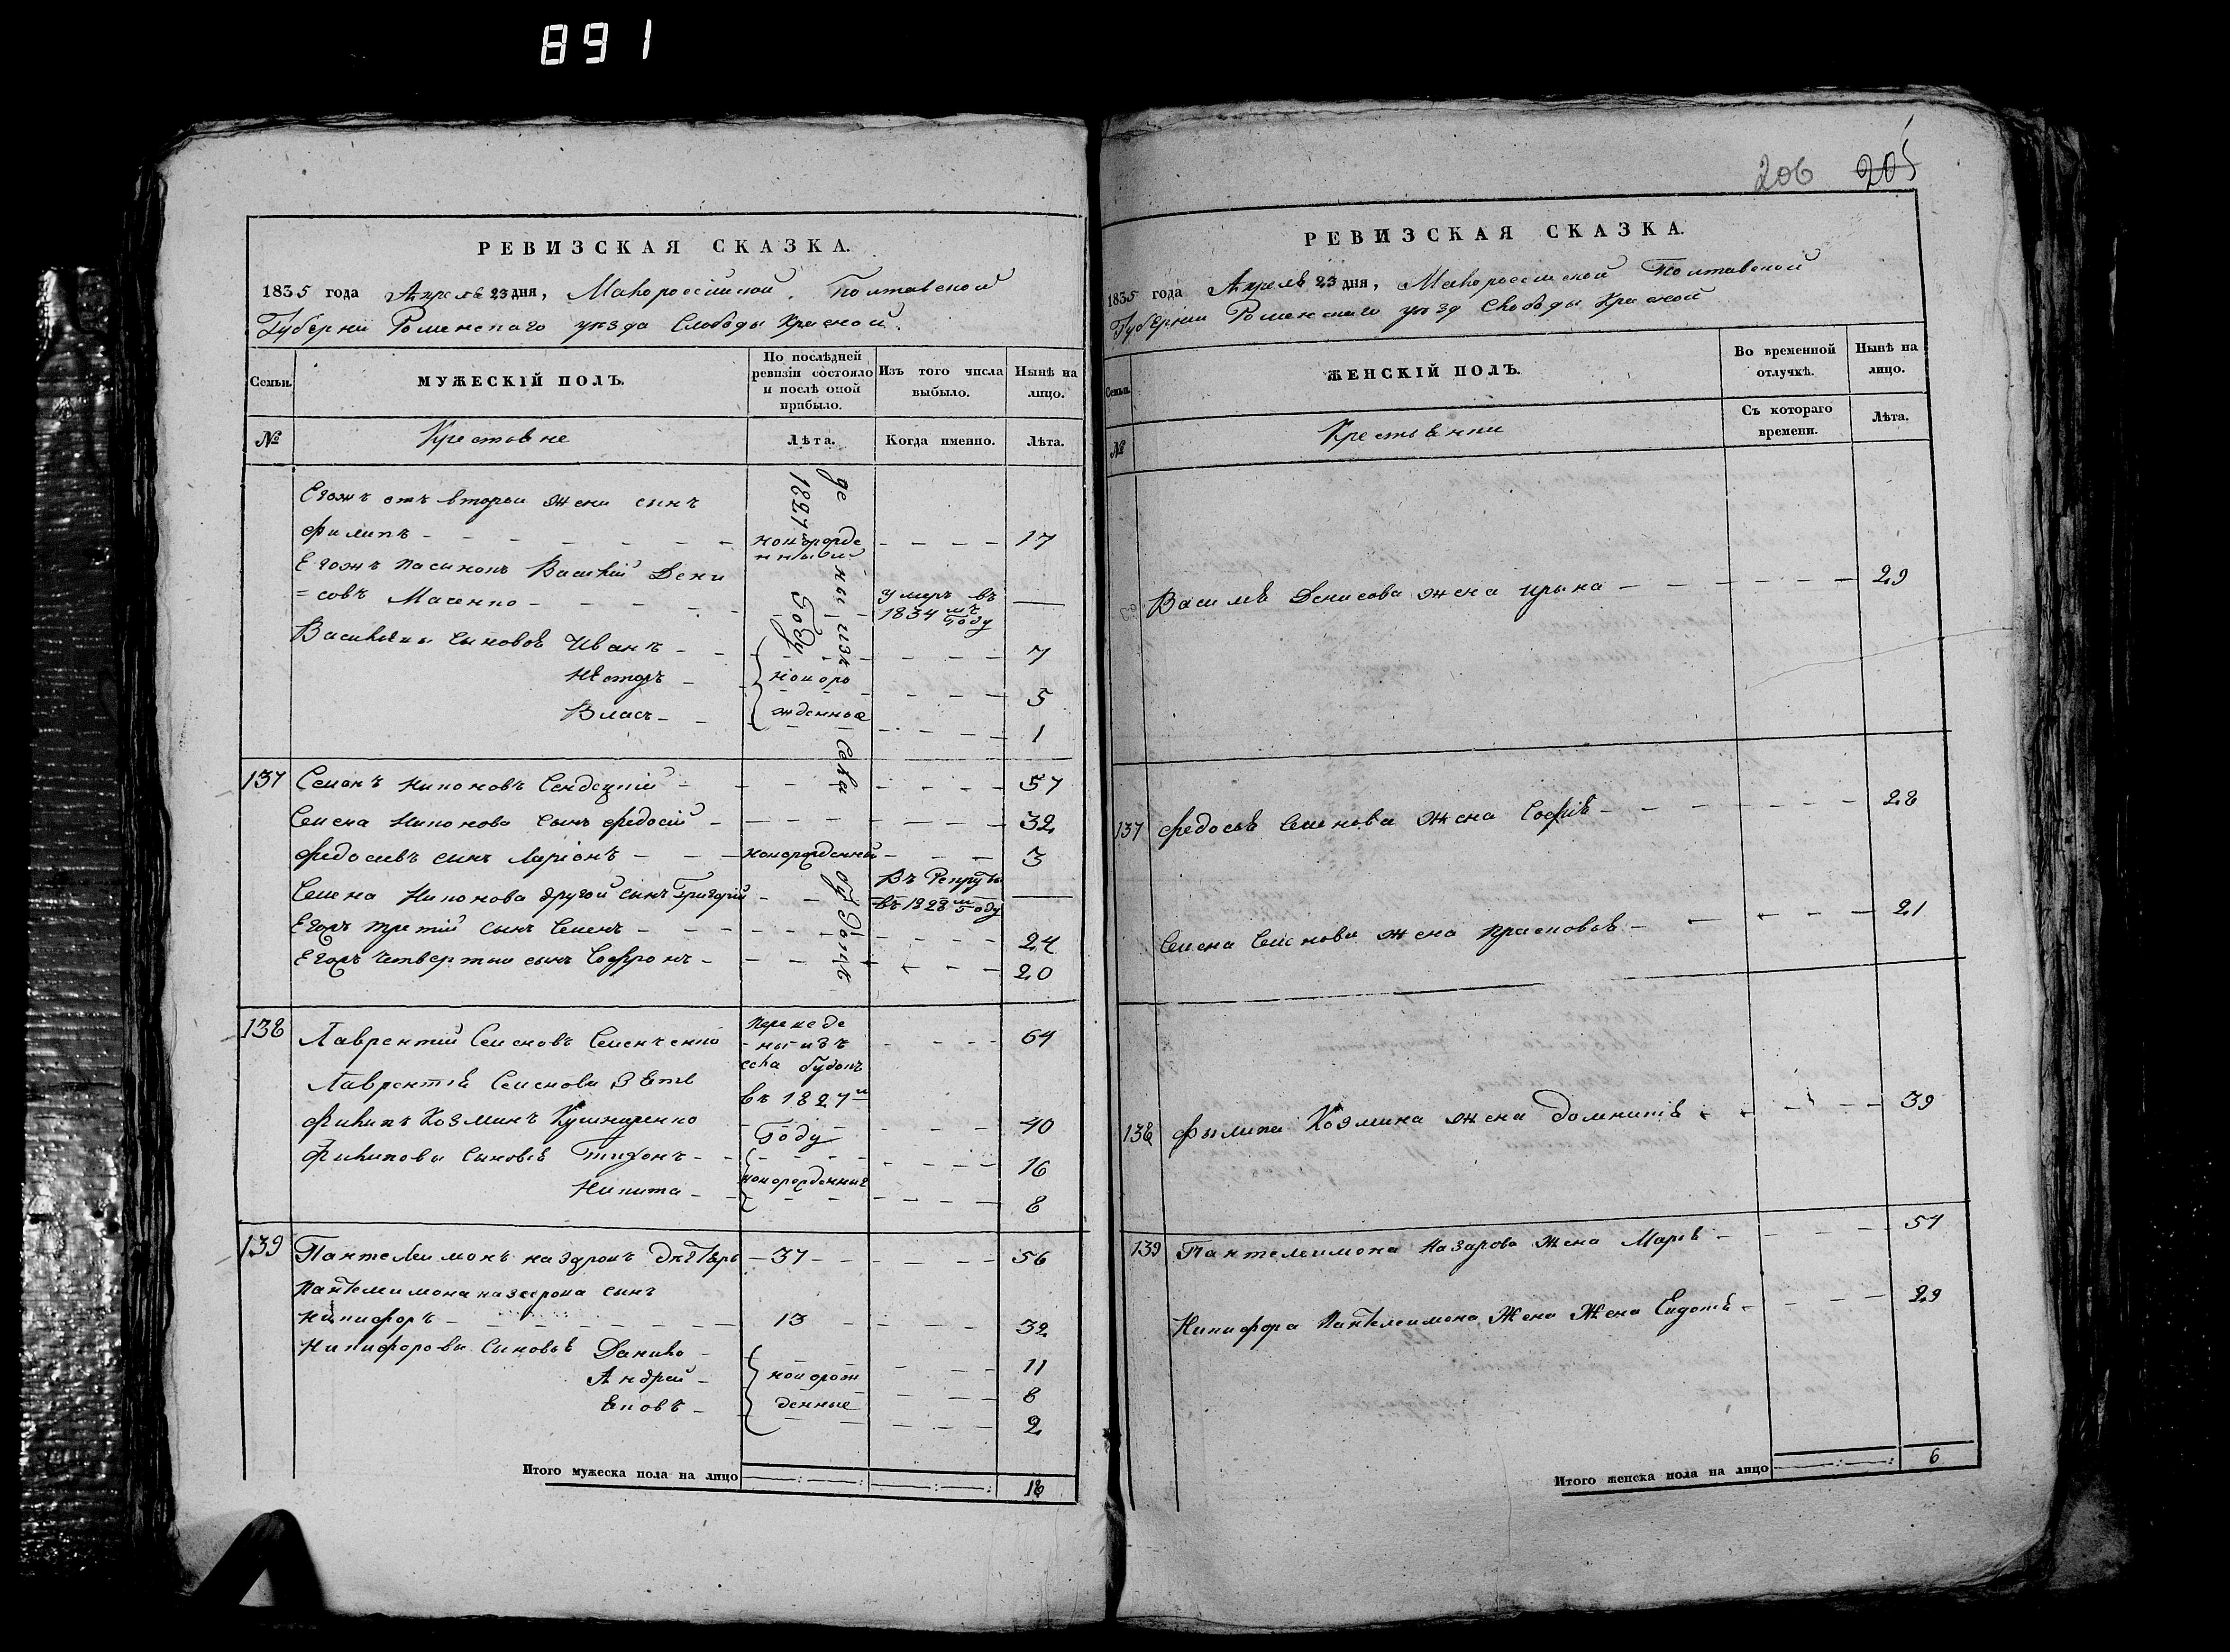 891
РЕВИЗСКАЯ СКАЗКА.
1835 года Апреля 23 дня, Малороссийской, Полтавской
Губернии Роменскаго уезда Слободы Красной.
Семьи.
МУЖЕСКІЙ ПОЛЪ.
По послѣдней
ревизіи состояло
и послѣ оной
прибыло.
Изъ того числа
выбыло.
Нынѣ на
лицо.
№
Крестьяне
Лѣта.
Когда именно.
Лѣта.
Егожъ отъ второи жени сынъ
Филипъ - новорожде 17
нныи
Егожъ пасинокъ Василій Дени
=совъ Масенко - умеръ въ
1834мъ году
Василиевы сыновья Иванъ - 7
Несторъ - новоро 5
Власъ - жденные 1
137 Семенъ Никоновъ Сендецкій - 57
Семена Никонова сынъ Федосій - 32
Федосиевъ сынъ Ларіонъ - новорожденный - 3
Семена Никонова другой сынъ Григорій - Въ Рекруты
въ 1828м году
Егожъ третій сынъ Семенъ - 24
Егожъ четвертыи сынъ Софронъ - 20
1827 Году
138 Лаврентий Семеновъ Семенченко 64
Переведе
-ны изъ
села Будокъ
въ 1827м
Году
Лаврентия Семенова Зять
Филипъ Козминъ Кушниренко 40
Филипови сыновья Тихонъ - 16
Никита - новорожденные 8
139 Пантелеимонъ Назаровъ - 37 - 56
Пантелеимона Назарова сынъ
Никифоръ - 13 32
Никифоровы сыновья Данило - 11
Андрей - новорож 8
Яковъ - денные 2
Итого мужеска пола на лицо 18
206 205
РЕВИЗСКАЯ СКАЗКА.
1835 года Апреля 23 дня, Малоросииской Полтавской
Губернии Роменскаго уезд Слободы Красной
Семьи.
ЖЕНСКІЙ ПОЛЪ.
Во временной
отлучкѣ.
Нынѣ на
лицо.
№
Крестьянки
Съ котораго
времени.
Лѣта.
Василя Денисова жена Ирына - 29
137 Федосья Семенова жена Софія - 28
Семена Семенова жена Прасковья - 21
138 Филипа Козмина жена Домникія - 39
139 Пантелеимона Назарова жена Марья - 51
Никифора Пантелеимона Жена Жена Евдотя - 29
Итого женска пола на лицо 6